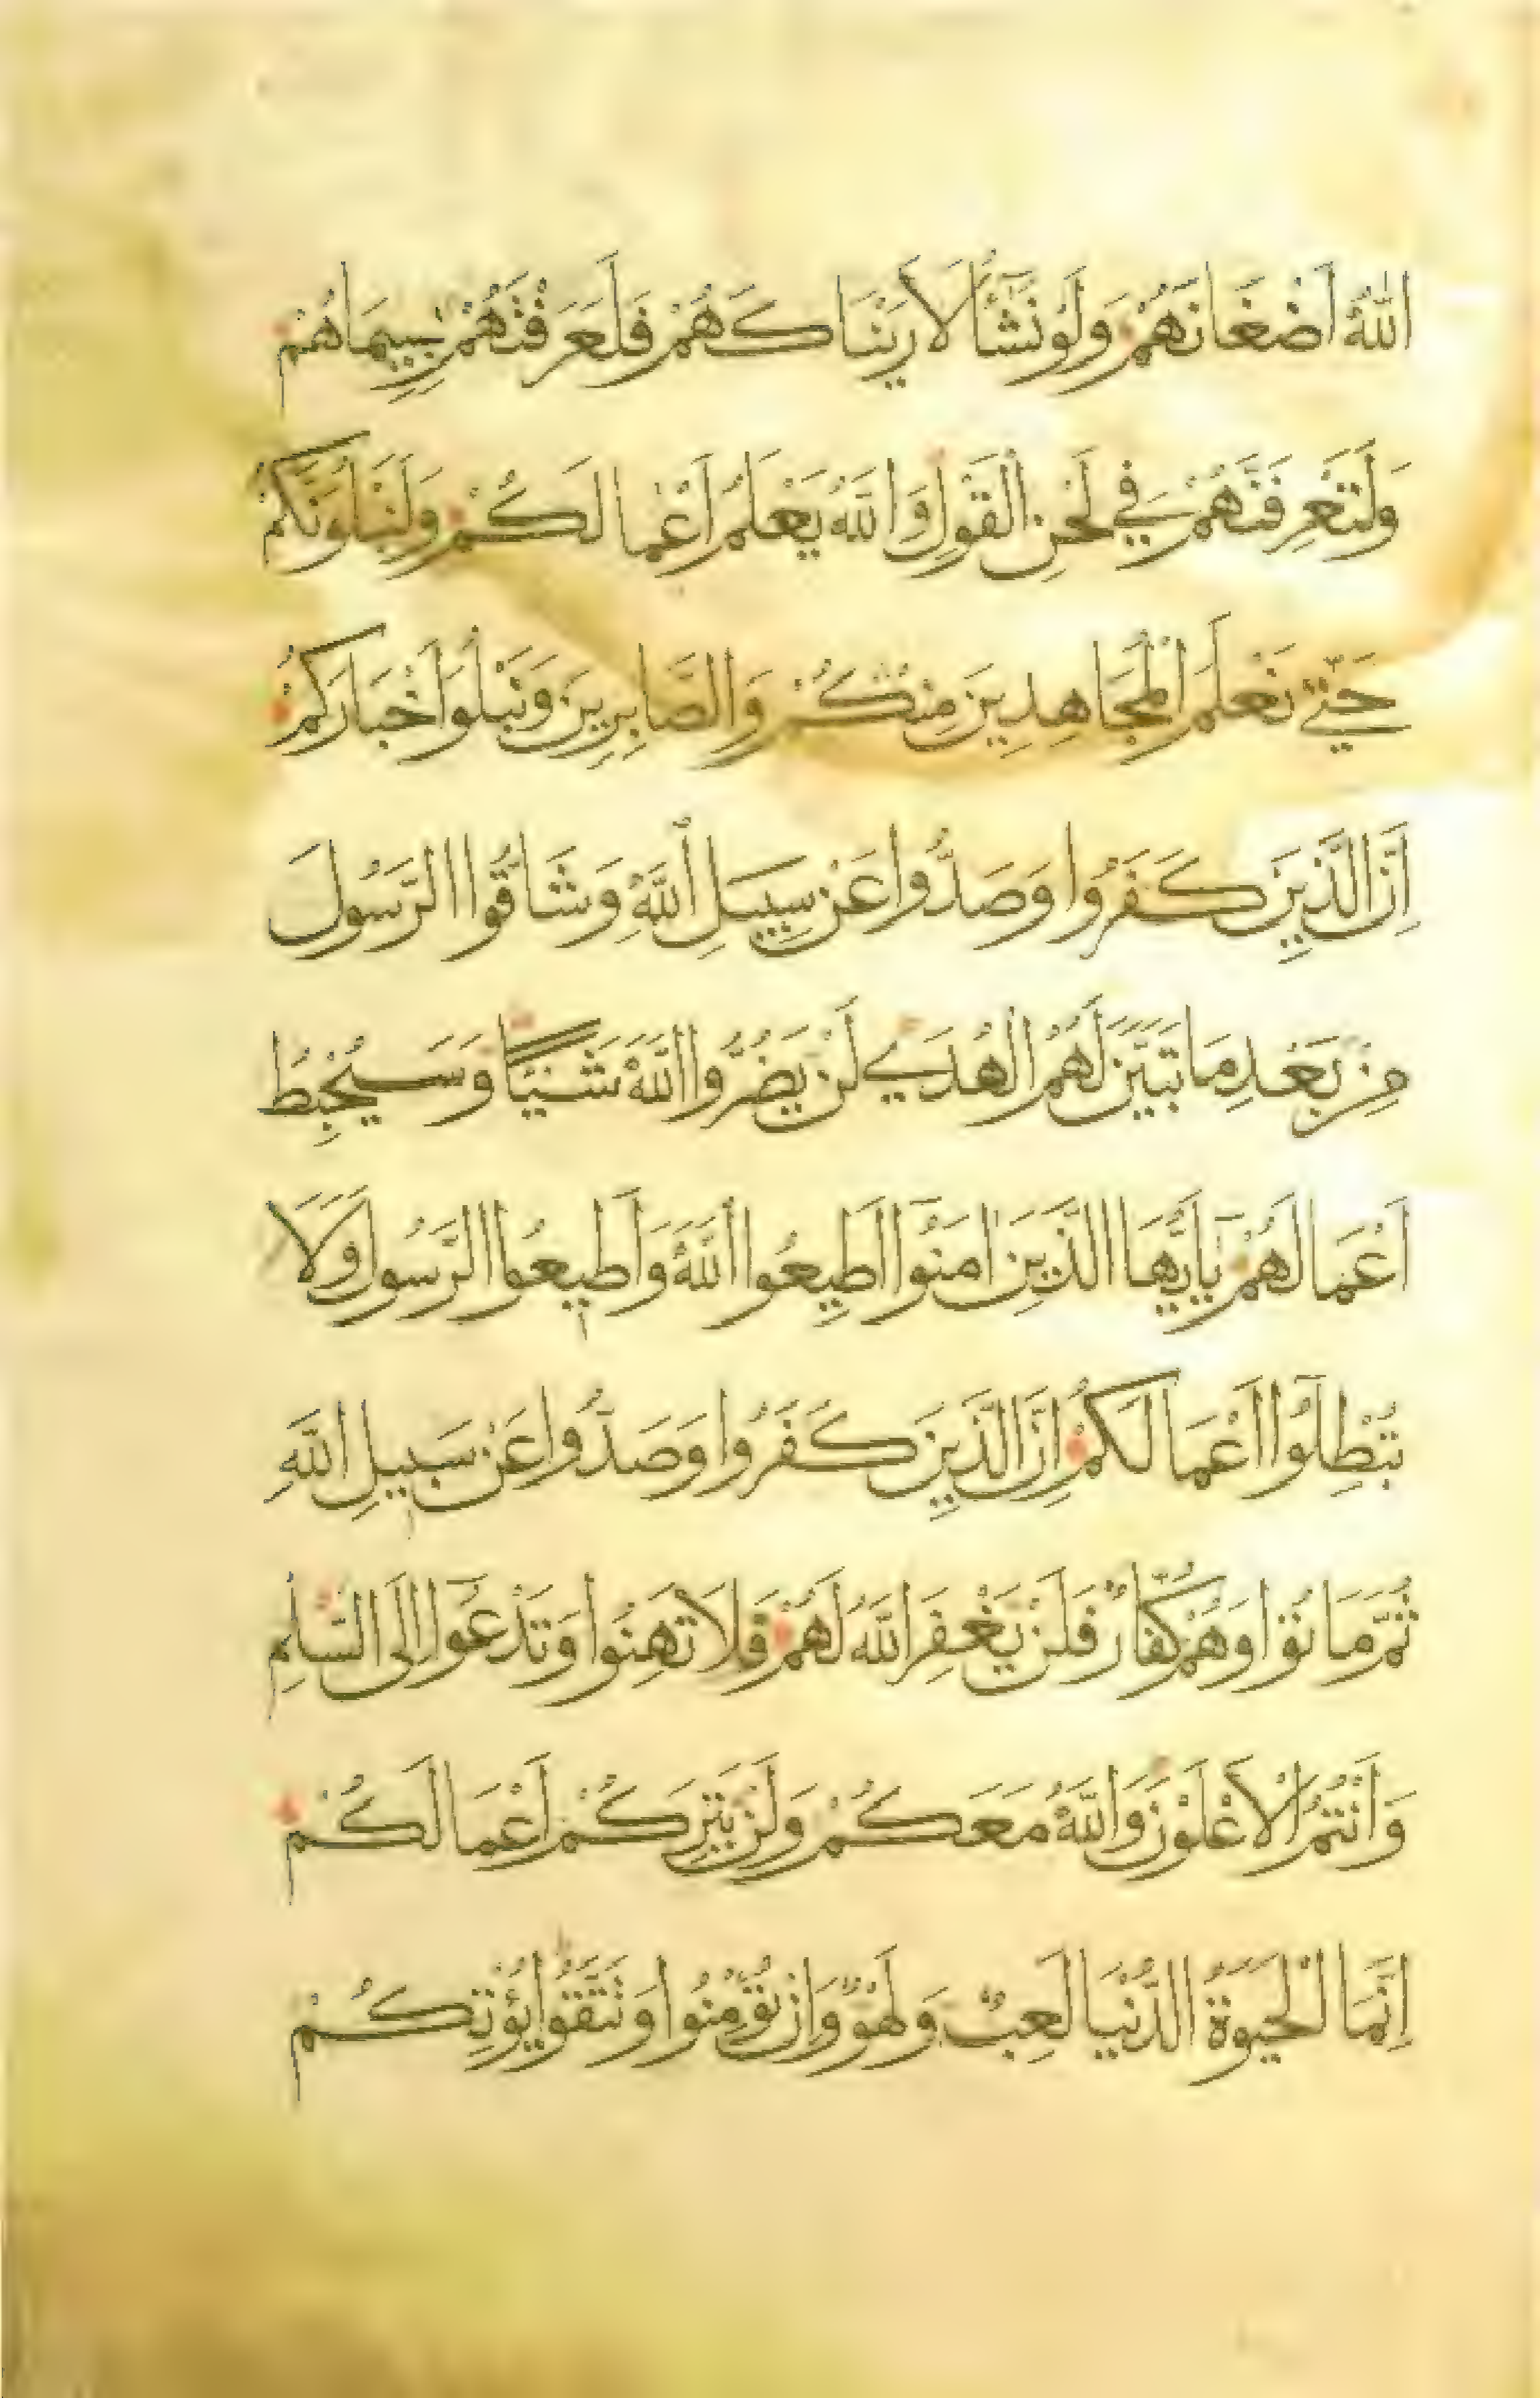 اللهُ اَضْغَانَهُمْ وَلَوْ نَشَآءُ لَاَرَيْنَاكَهُمْ فَلَعَرَفْتَهُمْ بِسِيمَاهُمْ
وَلَتَعْرِفَنَّهُمْ فِي لَحْنِ الْقَوْلِ وَاللهُ يَعْلَمُ اَعْمَالَكُمْ وَلَنَبْلُوَنَّكُمْ
حَتّٰي نَعْلَمَ الْمُجَاهِدِينَ مِنْكُمْ وَالصَّابِرِينَ وَنَبْلُوَا اَخْبَارَكُمْ
اِنَّ الَّذِينَ كَفَرُوا وَصَدُّوا عَنْ سَبِيلِ اللهِ وَشَاقُّوا الرَّسُولَ
مِنْ بَعْدِ مَا تَبَيَّنَ لَهُمُ الْهُدَي لَنْ يَضُرُّوا اللهَ شَيْئًا وَسَيُحْبِطُ
اَعْمَالَهُمْ يَآ اَيُّهَا الَّذِينَ اٰمَنُوٓا اَطِيعُوا اللهَ وَاَطِيعُوا الرَّسُولَ وَلَا
تُبْطِلُوٓا اَعْمَالَكُمْ اِنَّ الَّذِينَ كَفَرُوا وَصَدُّوا عَنْ سَبِيلِ اللهِ
ثُمَّ مَاتُوا وَهُمْ كُفَّارٌ فَلَنْ يَغْفِرَ اللهُ لَهُمْ فَلَا تَهِنُوا وَتَدْعُوٓا اِلَى السَّلْمِ
وَاَنْتُمُ الْاَعْلَوْنَ وَاللهُ مَعَكُمْ وَلَنْ يَتِرَكُمْ اَعْمَالَكُمْ
اِنَّمَا الْحَيَوةُ الدُّنْيَا لَعِبٌ وَلَهْوٌ وَاِنْ تُؤْمِنُوا وَتَتَّقُوا يُؤْتِكُمْ